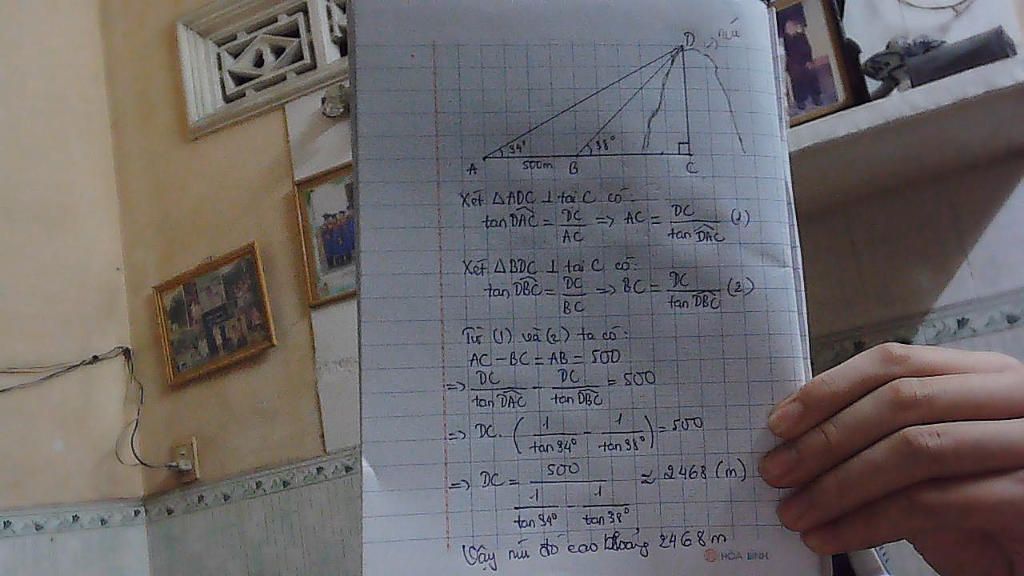 D
núi
34°
38°
A
500m
B
C
Xét △ADC ⊥ tại C có:
tan DAC = DC/AC => AC = DC/tan DAC (1)
Xét △BDC ⊥ tại C có:
tan DBC = DC/BC => BC = DC/tan DBC (2)
Từ (1) và (2) ta có:
AC - BC = AB = 500
=> DC/tan DAC - DC/tan DBC = 500
=> DC . (1/tan34° - 1/tan38°) = 500
=> DC = 500/(1/tan34° - 1/tan38°) ≈ 2468 (m)
Vậy núi đó cao khoảng 2468 m
HÒA BÌNH